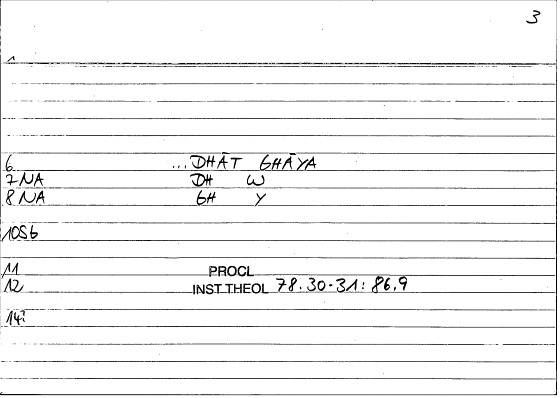 3
1
6 ...DHĀT GHĀYA
7 NA DH W
8 NA GH Y
10 S6
11 PROCL
12 INST THEOL 78.30-31: 86.9
14?